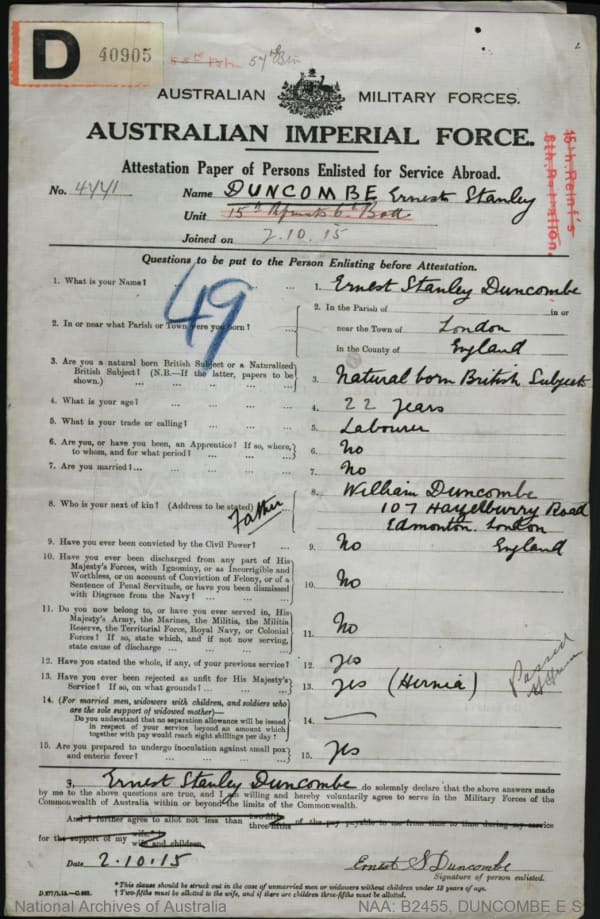 D 40905
57th Bn
AUSTRALIAN MILITARY FORCES.
AUSTRALIAN IMPERIAL FORCE.
15th. Reinf's
6th. Battalion.
Attestation Paper of Persons Enlisted for Service Abroad.
No. 4441 Name DUNCOMBE Ernest Stanley
Unit 15th Rfmts 6th Batt
Joined on 2.10.15
Questions to be put to the Person Enlisting before Attestation.
49
1. What is your Name? ... ... 1. Ernest Stanley Duncombe
2. In or near what Parish or Town were you born? ... 2. In the Parish of in or
near the Town of London
in the County of England
3. Are you a natural born British Subject or a Naturalized
British Subject? (N.B.—If the latter, papers to be
shown.) ... ... ... ... ... 3. Natural born British Subject
4. What is your age? ... ... ... ... 4. 22 years
5. What is your trade or calling? ... ... ... 5. Labourer
6. Are you, or have you been, an Apprentice? If so, where,
to whom, and for what period? ... ... ... 6. No
7. Are you married? ... ... ... ... ... 7. No
8. Who is your next of kin? (Address to be stated) Father 8. William Duncombe
107 Hazelburry Road
Edmonton. London
England
9. Have you ever been convicted by the Civil Power? ... 9. No
10. Have you ever been discharged from any part of His
Majesty's Forces, with Ignominy, or as Incorrigible and
Worthless, or on account of Conviction of Felony, or of a
Sentence of Penal Servitude, or have you been dismissed
with Disgrace from the Navy? ... ... ... 10. No
11. Do you now belong to, or have you ever served in, His
Majesty's Army, the Marines, the Militia, the Militia
Reserve, the Territorial Force, Royal Navy, or Colonial
Forces? If so, state which, and if not now serving,
state cause of discharge ... ... ... 11. No
12. Have you stated the whole, if any, of your previous service? 12. Yes
13. Have you ever been rejected as unfit for His Majesty's
Service? If so, on what grounds? ... ... ... 13. Yes (Hernia)
Passed
14. (For married men, widowers with children, and soldiers who
are the sole support of widowed mother—
Do you understand that no separation allowance will be issued
in respect of your service beyond an amount which
together with pay would reach eight shillings per day? 14. —
15. Are you prepared to undergo inoculation against small pox
and enteric fever? ... ... ... ... 15. Yes
I, Ernest Stanley Duncombe do solemnly declare that the above answers made
by me to the above questions are true, and I am willing and hereby voluntarily agree to serve in the Military Forces of the
Commonwealth of Australia within or beyond the limits of the Commonwealth.
And I further agree to allot not less than two-fifths three-fifths of the pay payable to me from time to time during my service
for the support of my wife.* wife and children.
Date 2.10.15 Ernest S Duncombe
Signature of person enlisted.
* This clause should be struck out in the case of unmarried men or widowers without children under 18 years of age.
† Two-fifths must be allotted to the wife, and if there are children three-fifths must be allotted.
National Archives of Australia NAA: B2455, DUNCOMBE E S